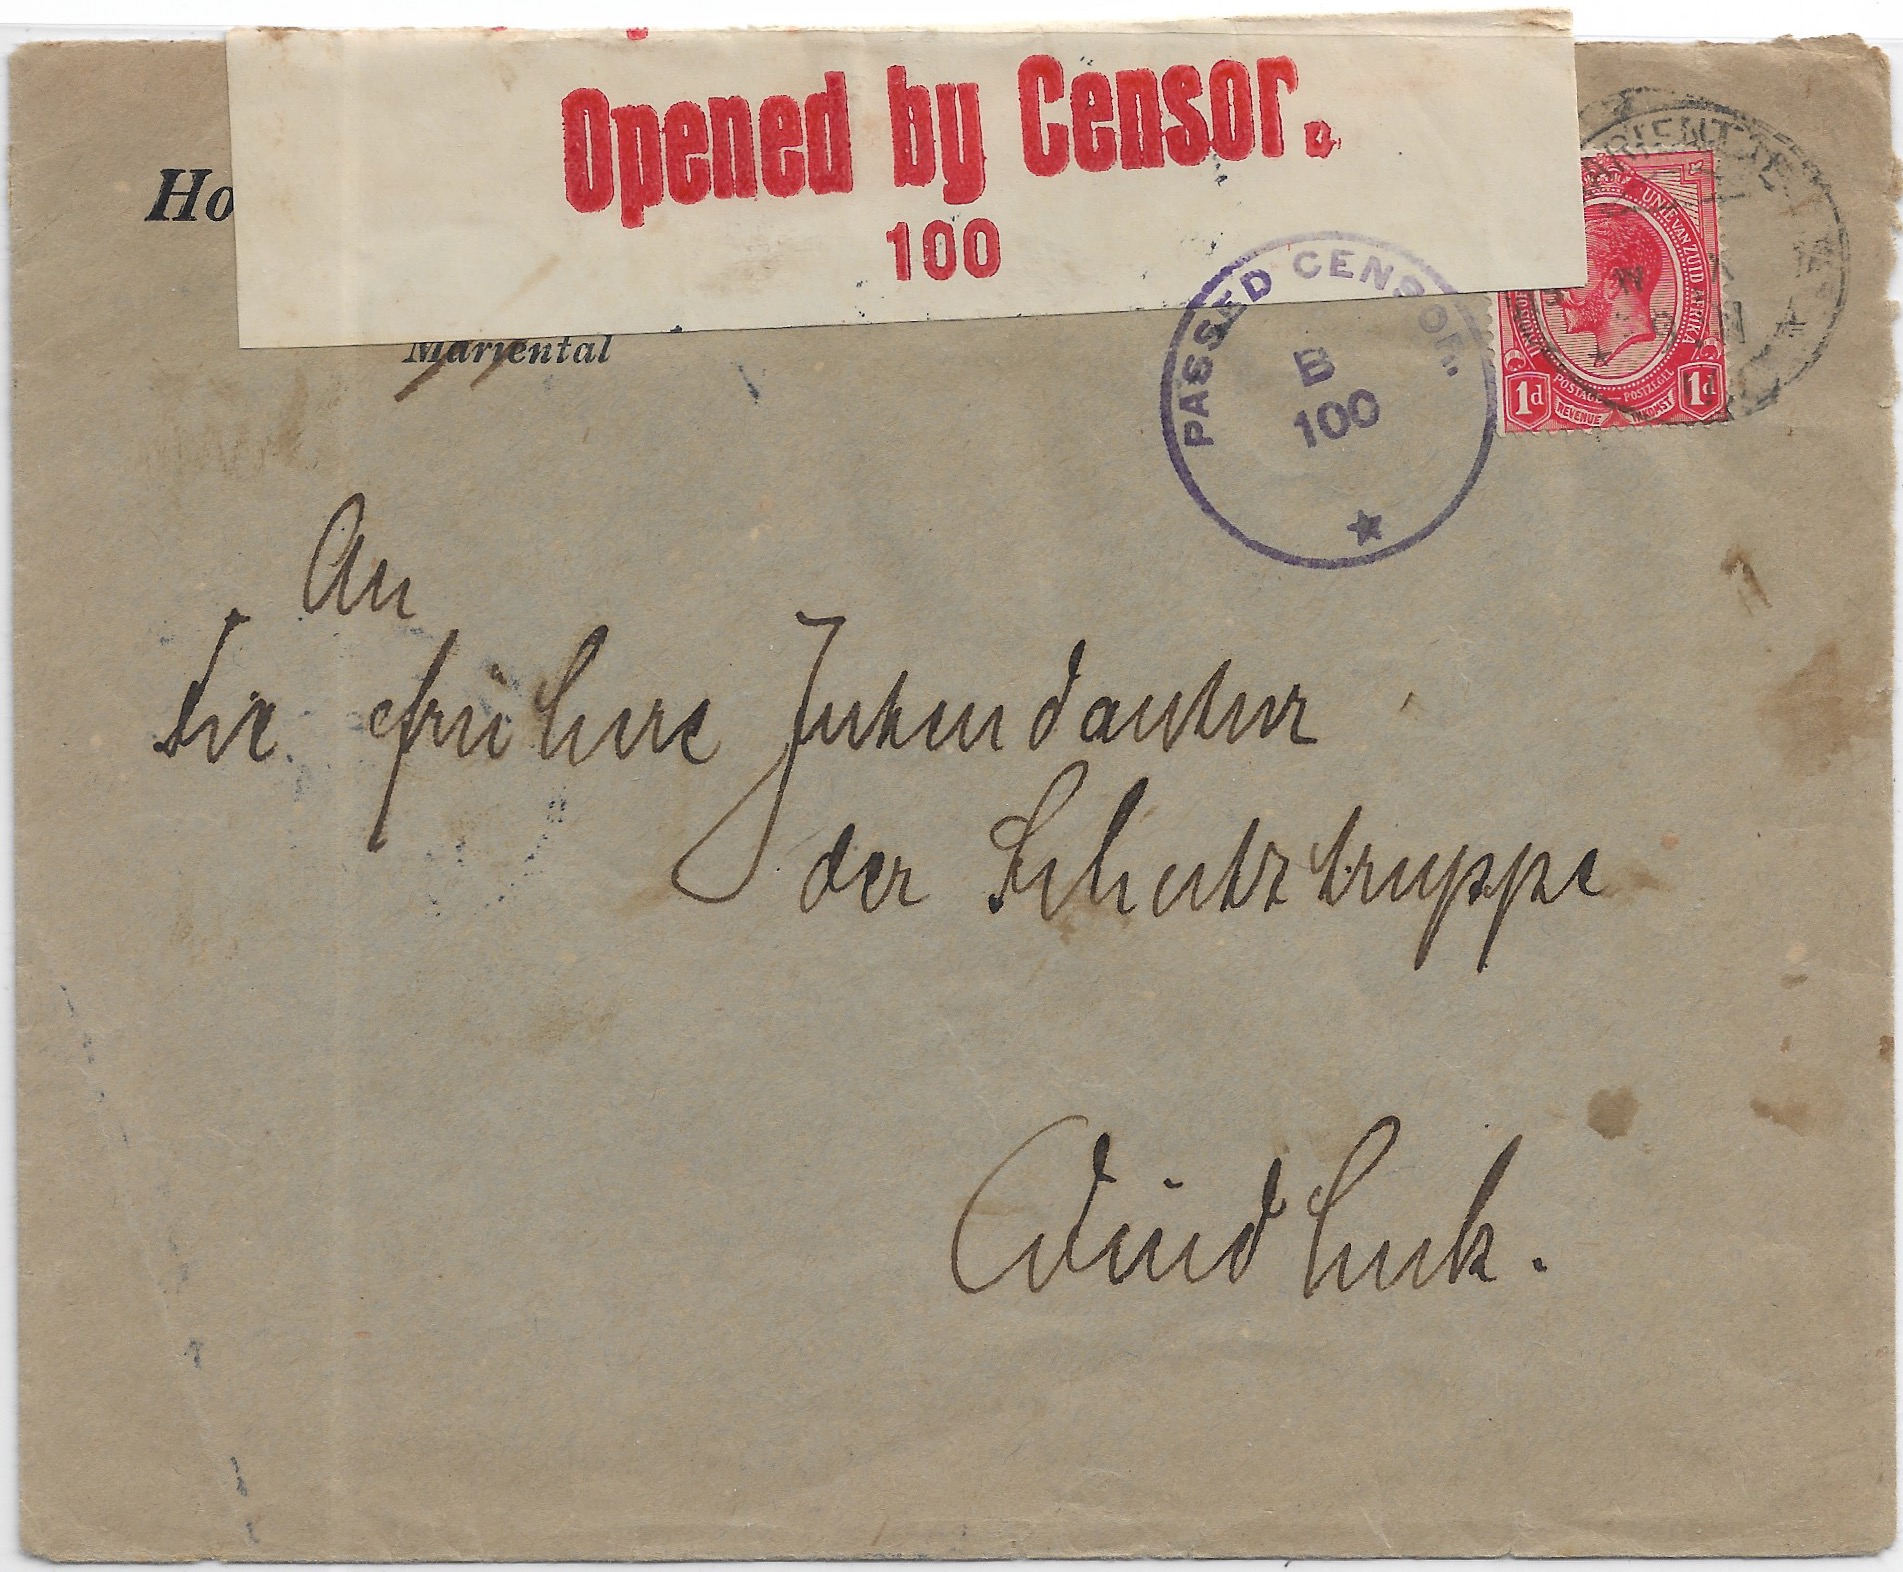 Opened by Censor.
100
Ho
Mariental
PASSED CENSOR.
B
100
UNIE VAN ZUID AFRIKA
POSTAGE POSTZEGEL
REVENUE INKOMST
1d 1d
An
Die frühere Intendantur
der Schutztruppe
Windhuk.